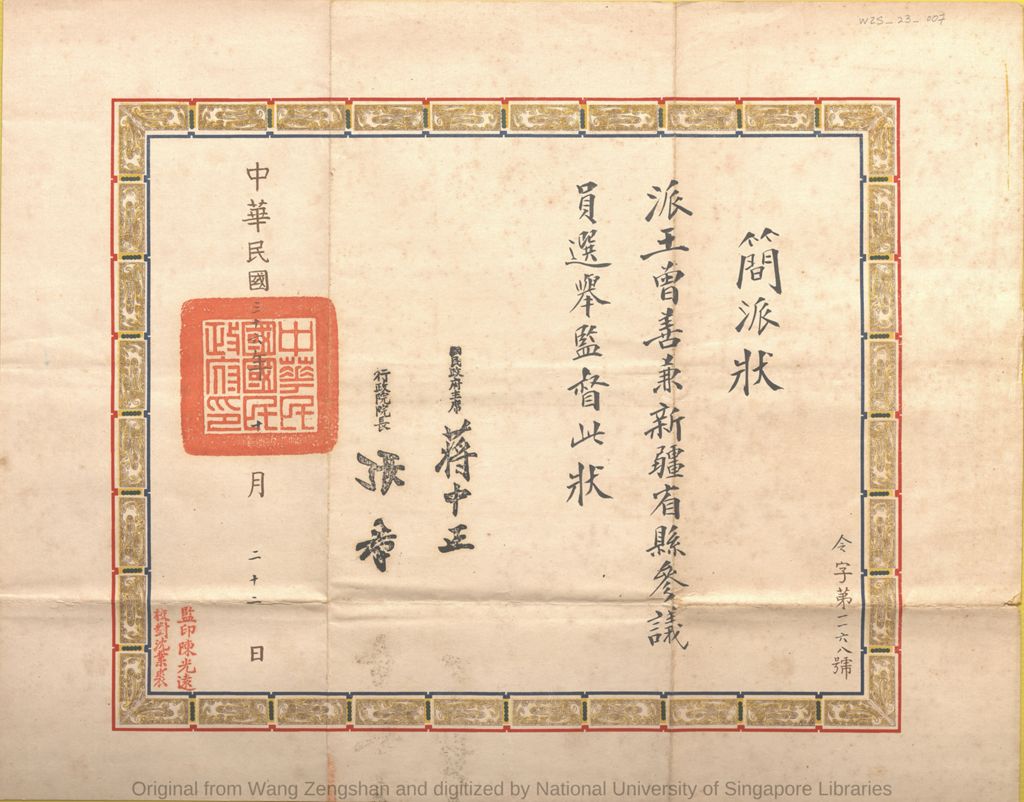 WZS_23_007
簡派狀
派王曾善兼新疆省縣參議
員選舉監督此狀
國民政府主席 蔣中正
行政院院長 張羣
中華民國三十六年十月二十二日
中華民
國國民
政府印
令字第一一六八號
監印陳光遠
校對沈業裘
Original from Wang Zengshan and digitized by National University of Singapore Libraries